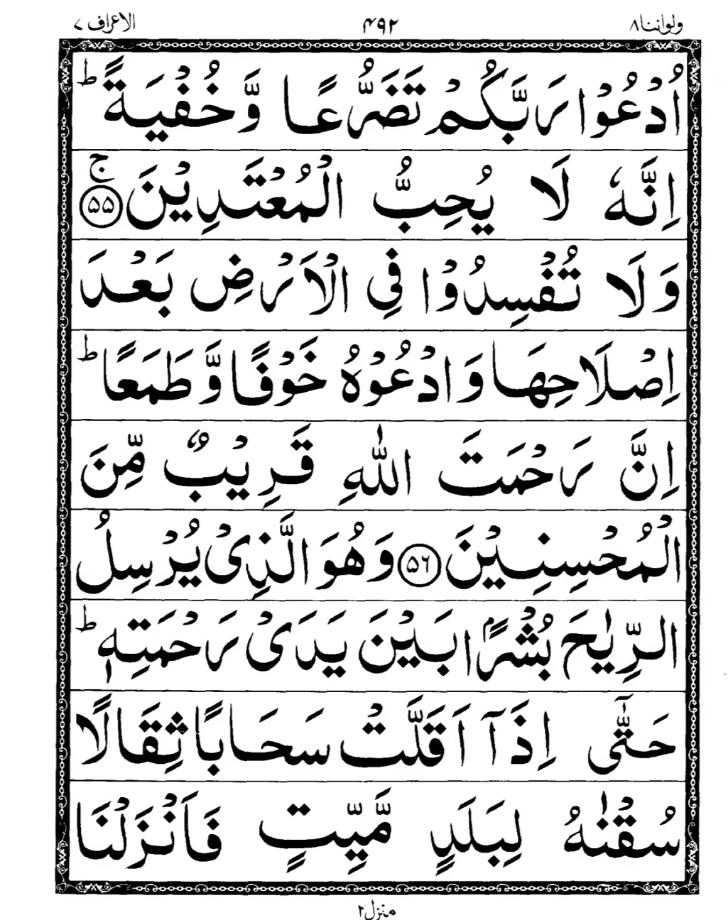 ولواننا ٨ ۴۹۲ الاعراف ٧
اُدْعُوْا رَبَّكُمْ تَضَرُّعًا وَّخُفْيَةً ؕ
اِنَّهٗ لَا يُحِبُّ الْمُعْتَدِيْنَ ۚ ﴿۵۵﴾
وَلَا تُفْسِدُوْا فِى الْاَرْضِ بَعْدَ
اِصْلَاحِهَا وَادْعُوْهُ خَوْفًا وَّطَمَعًا ؕ
اِنَّ رَحْمَتَ اللّٰهِ قَرِيْبٌ مِّنَ
الْمُحْسِنِيْنَ ﴿۵۶﴾ وَهُوَ الَّذِىْ يُرْسِلُ
الرِّيٰحَ بُشْرًۢا بَيْنَ يَدَىْ رَحْمَتِهٖ ؕ
حَتّٰٓى اِذَآ اَقَلَّتْ سَحَابًا ثِقَالًا
سُقْنٰهُ لِبَلَدٍ مَّيِّتٍ فَاَنْزَلْنَا
منزل ٢